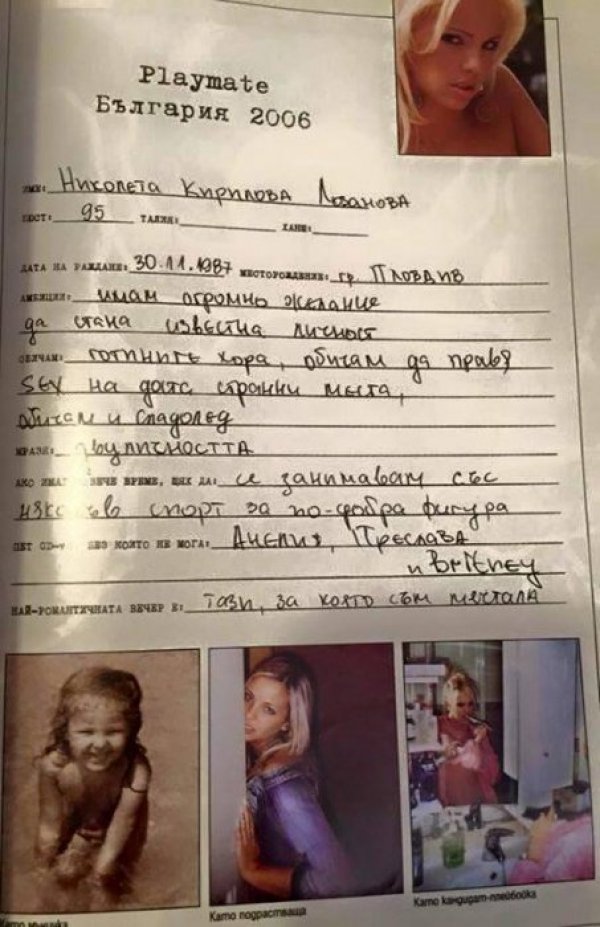 Playmate
България 2006
ИМЕ: Николета Кирилова Лозанова
БЮСТ: 95 ТАЛИЯ: ХАНШ:
ДАТА НА РАЖДАНЕ: 30.11.1987 МЕСТОРОЖДЕНИЕ: гр. Пловдив
АМБИЦИИ: имам огромно желание
да стана известна личност
ОБИЧАМ: готините хора, обичам да правя
SEX на доста странни места,
обичам и сладолед
МРАЗЯ: двуличността
АКО ИМАХ ПОВЕЧЕ ВРЕМЕ, ЩЯХ ДА: се занимавам със
някакъв спорт за по-добра фигура
ПЕТ CD-та, БЕЗ КОИТО НЕ МОГА: Анелия, Преслава
и Britney
НАЙ-РОМАНТИЧНАТА ВЕЧЕР Е: тази, за която съм мечтала
Като мъничка
Като подрастваща
Като кандидат-плейбойка